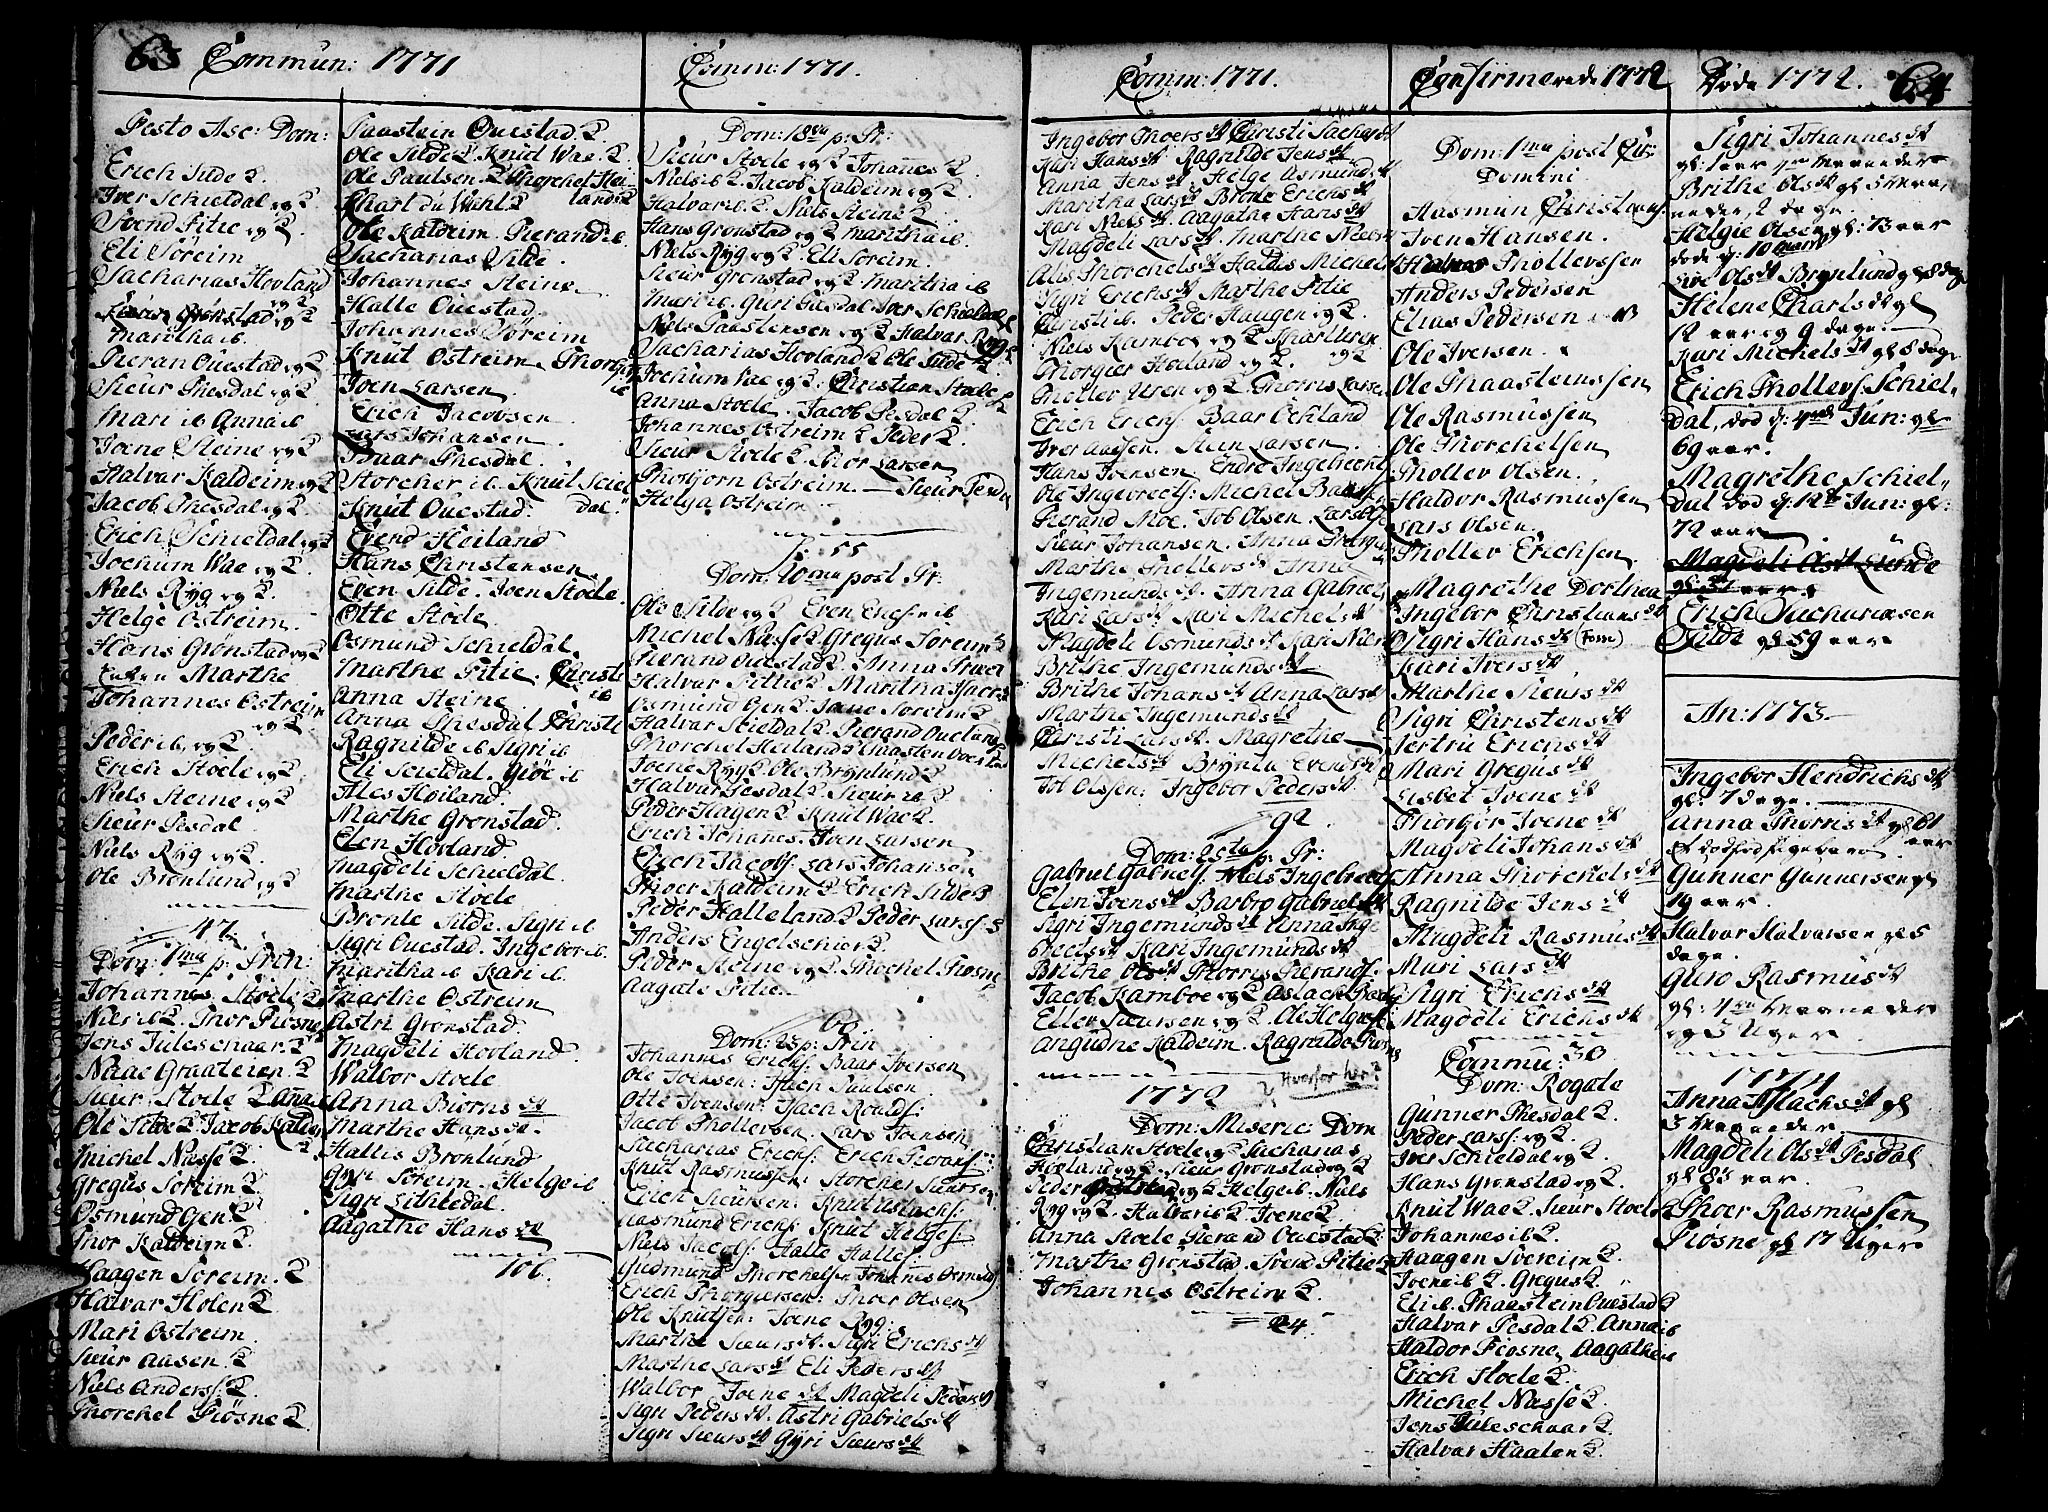 63 Commun: 1771
Festo Asc: Dom:
Erich Silde 2.
Iver Schieldal og 2
Svend Pitie og 2.
Eli Søreim
Sacharias Hovland
og 2
Siur Grønstad og 2
Martha ib.
Pieran Ouestad og 2
Sieur Thesdal og 2
Mari ib Anna ib
Joene Steine og 2
Halvar Kaldeim og 2
Jacob Thesdal og 2
Erich Schieldal og 2
Jochum Wae og 2.
Niels Ryg og 2
Helge Ostreim.
Hans Grønstad og 2
Marthe
Johannes Ostreim
og 2
Peder ib. og 2
Erich Støele og 2
Niels Steine og 2
Sieur Pesdal
Niels Ryg og 2
Ole Brønlund og 2
47.
Dom: 7ma p: Trin:
Johannes Støele 2
Niels ib 2. Thor Fiøsne
Jens Juleschaar 2
Naae Graateren 2
Sieur Støele 2 Anna
Ole Silde 2 Jacob Kaldeim
2.
Michel Næsse 2.
Gregus Soreim 2
Osmund Gen 2
Thor Kaldeim 2.
Haagen Soreim. 2
Halvar Holen 2
Mari Ostreim.
Sieur Aasen. 2
Niels Anders: 2.
Thorchel Fiøsne 2
Faastein Ouestad 2
Ole Silde 2. Knud Wae. 2
Ole Paulsen 2 Thorchel Hei
Charl du Wahl 2 lands 2
Ole Kaldeim. Pierand ib
Sacharias Silde.
Johannes Steine
Halle Ouestad.
Johannes Søreim
Knut Ostreim. Thorgier
ib
Joen Larsen
Erich Jacobsen
Lars Johansen
Baar Thesdal.
Storcher ib. Knut Sciel
Knut Ouestad: dal"
Evend Høiland
Hans Christensen
Even Silde. Joen Støele.
Otte Støele
Osmund Schieldal.
Marthe Pitie. Christi
ib
Anna Steine
Anna Thesdal Christi
Ragnilde ib Sigri ib
Eli Scieldal. Giøe ib
Ales Høiland.
Marthe Grønstad.
Elen Hovland
Magdeli Schieldal.
Marthe Støele
Brønle Silde. Sigri ib
Sigri Ouestad. Ingebor ib.
Maritha ib Kari ib.
Marthe Ostreim
Astri Grønstad
Magdeli Hovland.
Walbor Støele
Anna Biørns dt
Marthe Hans dt.
Hallis Brønlund
Gyri Søreim. Helge ib.
Sigri Lithledal.
Aagathe Hans dt
106.
Comm: 1771.
Dom: 18va p: Tr:
Sieur Støele og 2 Johannes 2
Niels ib 2. Jacob Kaldeim og 2.
Halvar ib. 2. Niels Steine 2
Hans Grønstad og 2 Maritha ib
Niels Ryg og 2. Eli Søreim.
Sieur Grønstad og 2 Maritha ib
Mari ib. Guri Giesdal. Iver Schieldal 2
Niels Faastensen og 2 Halvar Ryg 2
Sacharias Hovland 2 Ole Silde 2
Jochum Vae og 2. Christian Støele 2
Anna Støele. Jacob Pesdal 2.
Johannes Ostreim 2 Peder 2.
Sieur Støele 2 Thor Larsen
Thorbjorn Ostreim. — Sieur Ferda
Helga Ostreim
S: 55
Dom: 20ma post Tr:
Ole Silde og 2 Even Erics: ib
Michel Næsse 2 Gregus Soreim 2
Pierand Ouestad 2 Anna
Halvar Pittie 2 Maritha
Osmund Gen 2. Joene Soreim 2
Halvar Stieldal 2 Pierand Ouestad
Thorchel Heiland 2 Faasten Ouestad
Joene Ryg 2 Ole Brynlund 2
Halvar Pesdal 2. Sieur ib 2
Peder Hagen 2 Knut Wae 2
Erich Johanes. Joen Larsen
Erich Jacobs: Lars Johansen
Thoer Kaldeim 2 Erich Silde 2
Peder Halleland 2 Peder Larss: 2
Anders Engelschiør 2
Peder Steine og 2. Thorchel Fiøsne
Aagate Pitie
66
Dom: 23 p: Trin
Johannes Erichs: Baar Iversen
Ole Joensen: Isach Paulsen
Otte Ivensen: Isach Roalds:
Jacob Thollevsen Lars Joensen
Sacharias Erichs: Erich Pierans:
Knut Rasmussen: Storcher Sieursen
Erich Sieursen: Knut Aslachs:
Aasmund Erichs: Knut Helges:
Niels Jacobs: Halle Halles:
Gudmund Thorchelsen Johannes Osmunds:
Erich Thorgiersen: Thoer Olsen
Ole Knutsen: Joene Ryg:
Marthe Sieurs dt. Sigri Erichs dt
Marthe Lars dt Eli Peders dt
Walbor Joene dt Magdeli Peders dt
Sigri Peders dt. Astri Gabriels dt
Sigri Sieurs dt Gyri Sieurs dt
Comm: 1771.
Ingebor Thoers dt Christi Sachar dt
Kari Hans dt Ragnilde Jens dt
Anna Jens dt Helge Osmund dt
Maritha Lars dt Brønle Erichs dt
Kari Niels dt. Aagathe Hans dt
Magdeli Lars dt. Marthe Niels dt
Alis Thorchels dt Haldis Michels
Sigri Erichs dt Marthe Pitie
Christi ib. Peder Haugen og 2.
Niels Kamboe og 2 Charl Uren
Thorgier Høiland og 2. og 2
Tholler Uren og 2 Thorris Larsen
Erich Erichs: Baar Ochland
Iver Aasen. Stein Larsen
Hans Joensen. Endre Ingebrecht
Ole Ingebrects: Michel Baars:
Pierand Moe. Job Olsen. Lars
Sieur Johansen. Anna Thorgier
Marthe Thollevs dt Anne
Ingemunds dt. Anna Gabriels
Kari Lars dt Kari Michels dt
Magdeli Osmunds dt Kari Niels
Brithe Ingemunds dt
Brithe Johans dt Anna Lars dt
Marthe Ingemunds dt
Christi Lars dt. Magrethe
Michels dt Brynla Evens dt
Job Olssen: Ingebor Peders dt
92.
Dom: 25ta p: Tr:
Gabriel Gabriels: Niels Ingebrects
Elen Joens dt Barbro Gabriels dt
Sigri Ingemunds dt Anna Inge
brects dt Kari Ingemunds dt
Brithe Ols dt Thorris Pierands:
Jacob Kamboe og 2 Oslach
Ellev Sieursen og 2. Ole Helgess:
Angudne Kaldeim. Ragnilde Fiøsne
1772 ? Hvorfor her?
Dom: Miseric: Dom
Christian Støele og 2 Sacharias
Hovland og 2 Sieur Grønstad og 2
Peder og 2 Helge ib. Niels
Ryg og 2. Halvar ib 2 Joene 2
Anna Støele Pierand Ouestad 2
Marthe Grønstad. Svend Pitie 2
Johannes Ostreim 2.
24.
Confirmerede 1772
Dom: 1ma post Epi:
Domini
Aasmun Christians:
Joen Hansen.
Halvor Thollevssen
Anders Pedersen
Elias Pedersen
Ole Iversen.
Ole Thaasteinssen
Ole Rasmussen
Ole Thorchelsen
Thollev Olsen.
Haldor Rasmussen
Lars Olsen.
Thollev Erichsen
Magrethe Dorthea
Ingebor Christians dt
Sigri Hans dt (Tom)
Kari Ivers dt
Marthe Sieurs dt
Sigri Christens dt
Sertru Erichs dt
Mari Gregus dt
Lisbet Joene dt
Thorbjør Joene dt
Magdeli Johans dt
Anna Thorchels dt
Ragnilde Jens dt
Magdeli Rasmus dt
Mari Lars dt
Sigri Erichs dt
Magdeli Erichs dt
30.
Commu:
Dom: Rogate
Gunner Thesdal 2.
Peder Larss: og 2.
Iver Schieldal og 2.
Hans Grønstad og 2.
Knut Wae 2. Sieur Støele 2
Johannes ib 2.
Haagen Søreim 2
Joene ib 2. Gregus 2.
Eli ib. Thaastein Ouestad 2
Halvar Pesdal 2. Anna ib
Haldor Fiøsne, Aagathe ib
Erich Støele 2.
Michel Næsse 2.
Jens Juleschaar 2.
Halvar Haalen 2
Døde 1772. 64
Sigri Johannes dt
gl: 1 aar maaneder
Brithe Ols dt gl 5 maa,
neder, 2 dage
Helgie Olsen gl: 73 aar
døde d: 10 Marti
Ols dt Brynlund gl 8 dage
Helene Charls dt gl
12 aar og 9 dage.
Kari Michels dt gl 8 dage
Erich Thollevs: Schiel-
dal, død d: 4de Jun: gl
69 aar.
Magrethe Schiel"
dal død d: 12te Jun: gl:
72 aar
Magdeli Lunde
Erich Sachariæsen
Silde gl 59 aar
An: 1773
Ingebor Hendrichs dt
gl: 7 dage.
Anna Thorris dt gl 61
aar
Gunner Gunnersen gl
19 aar.
Halvar Halvarsen gl 5
dage.
Guro Rasmus dt
gl: 4 maaneder
og 3 Uger.
1774
Anna Aslachs dt gl
3 maaneder.
Magdeli Ols dt Pesdal
gl 83 aar.
Thoer Rasmussen
Fiøsne gl 17 Uger